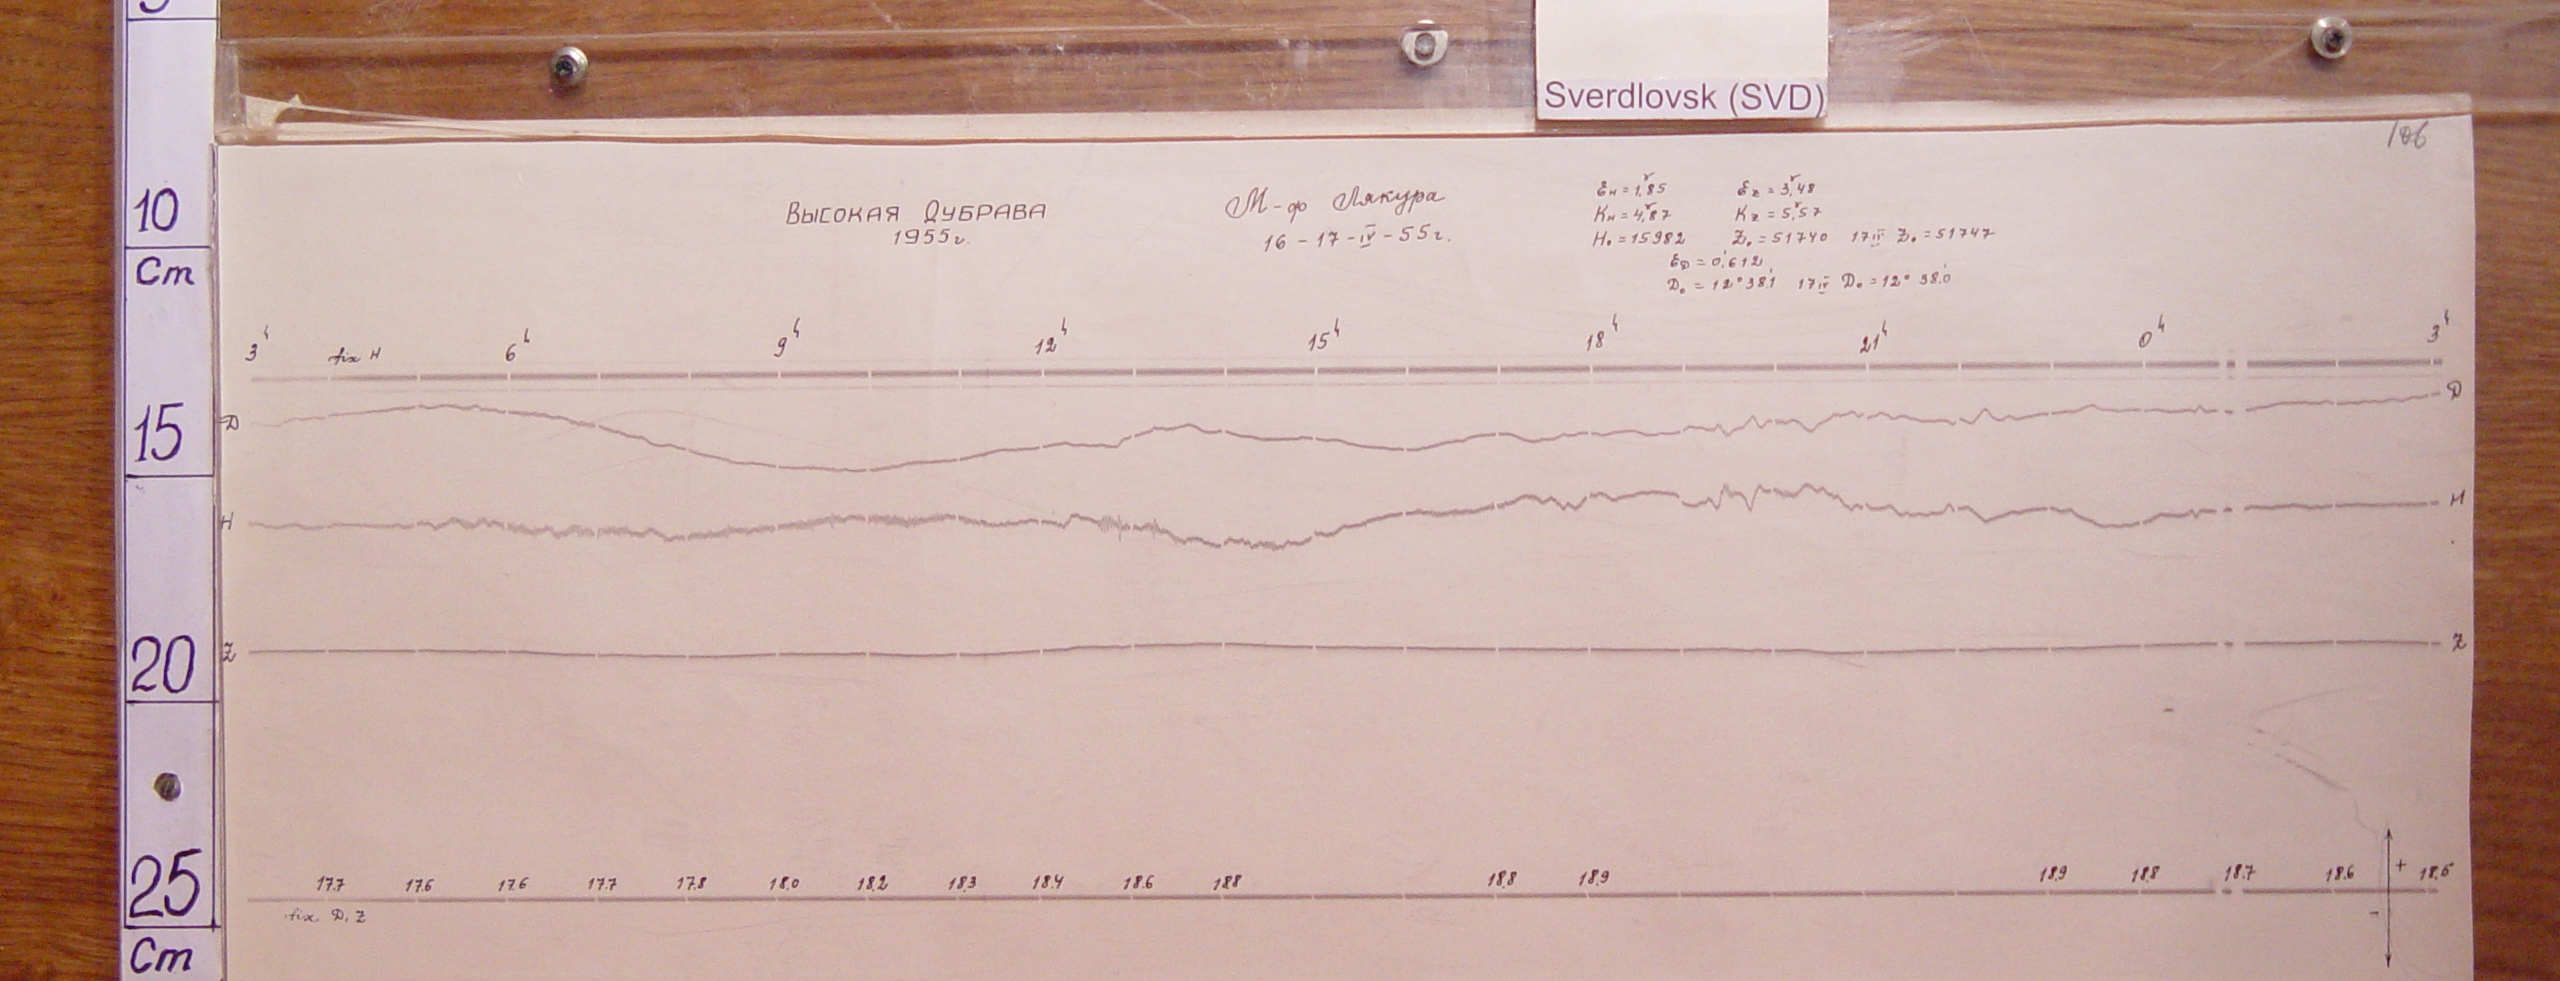 5
Sverdlovsk (SVD)
106
10
Cm
15
20
25
Cm
Высокая Дубрава
1955г.
М-ф Лякура
16 - 17 - IV - 55г.
Ɛн = 1,ᵞ85 Ɛz = 3,ᵞ48
Kн = 4,ᵞ87 Kz = 5,ᵞ57
H₀ = 15982 Z₀ = 51740 Z₀ = 51747
ƐD = 0,'612
D₀ = 12° 38,'1 17 IV D₀ = 12° 38,'0
3ʰ 6ʰ 9ʰ 12ʰ 15ʰ 18ʰ 21ʰ 0ʰ 3ʰ
fix H
D D
H H
Z Z
17.7 17.6 17.6 17.7 17.8 18.0 18.2 18.3 18.4 18.6 18.8 18.8 18.9 18.9 18.8 18.7 18.6 18.6
+
-
fix D, Z